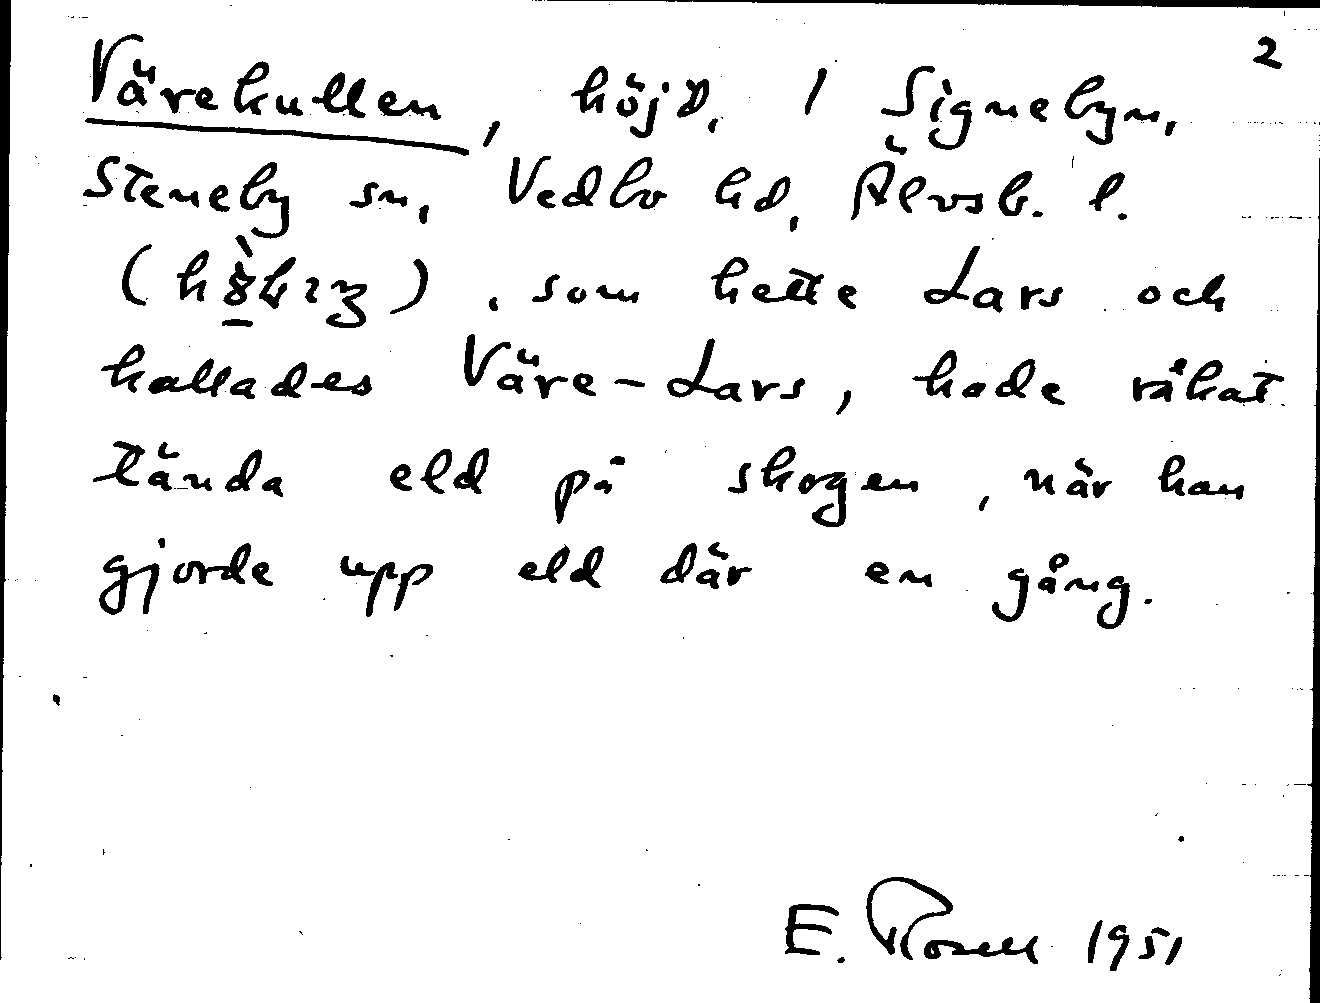 2
Värekullen, höjd. / Signebyn,
Steneby sn, Vedbo hd, Älvsb. l.
, som hette Lars och
kallades Väre-Lars, hade råkat
tända eld på skogen, när han
gjorde upp eld där en gång.
E. Rosell 1951